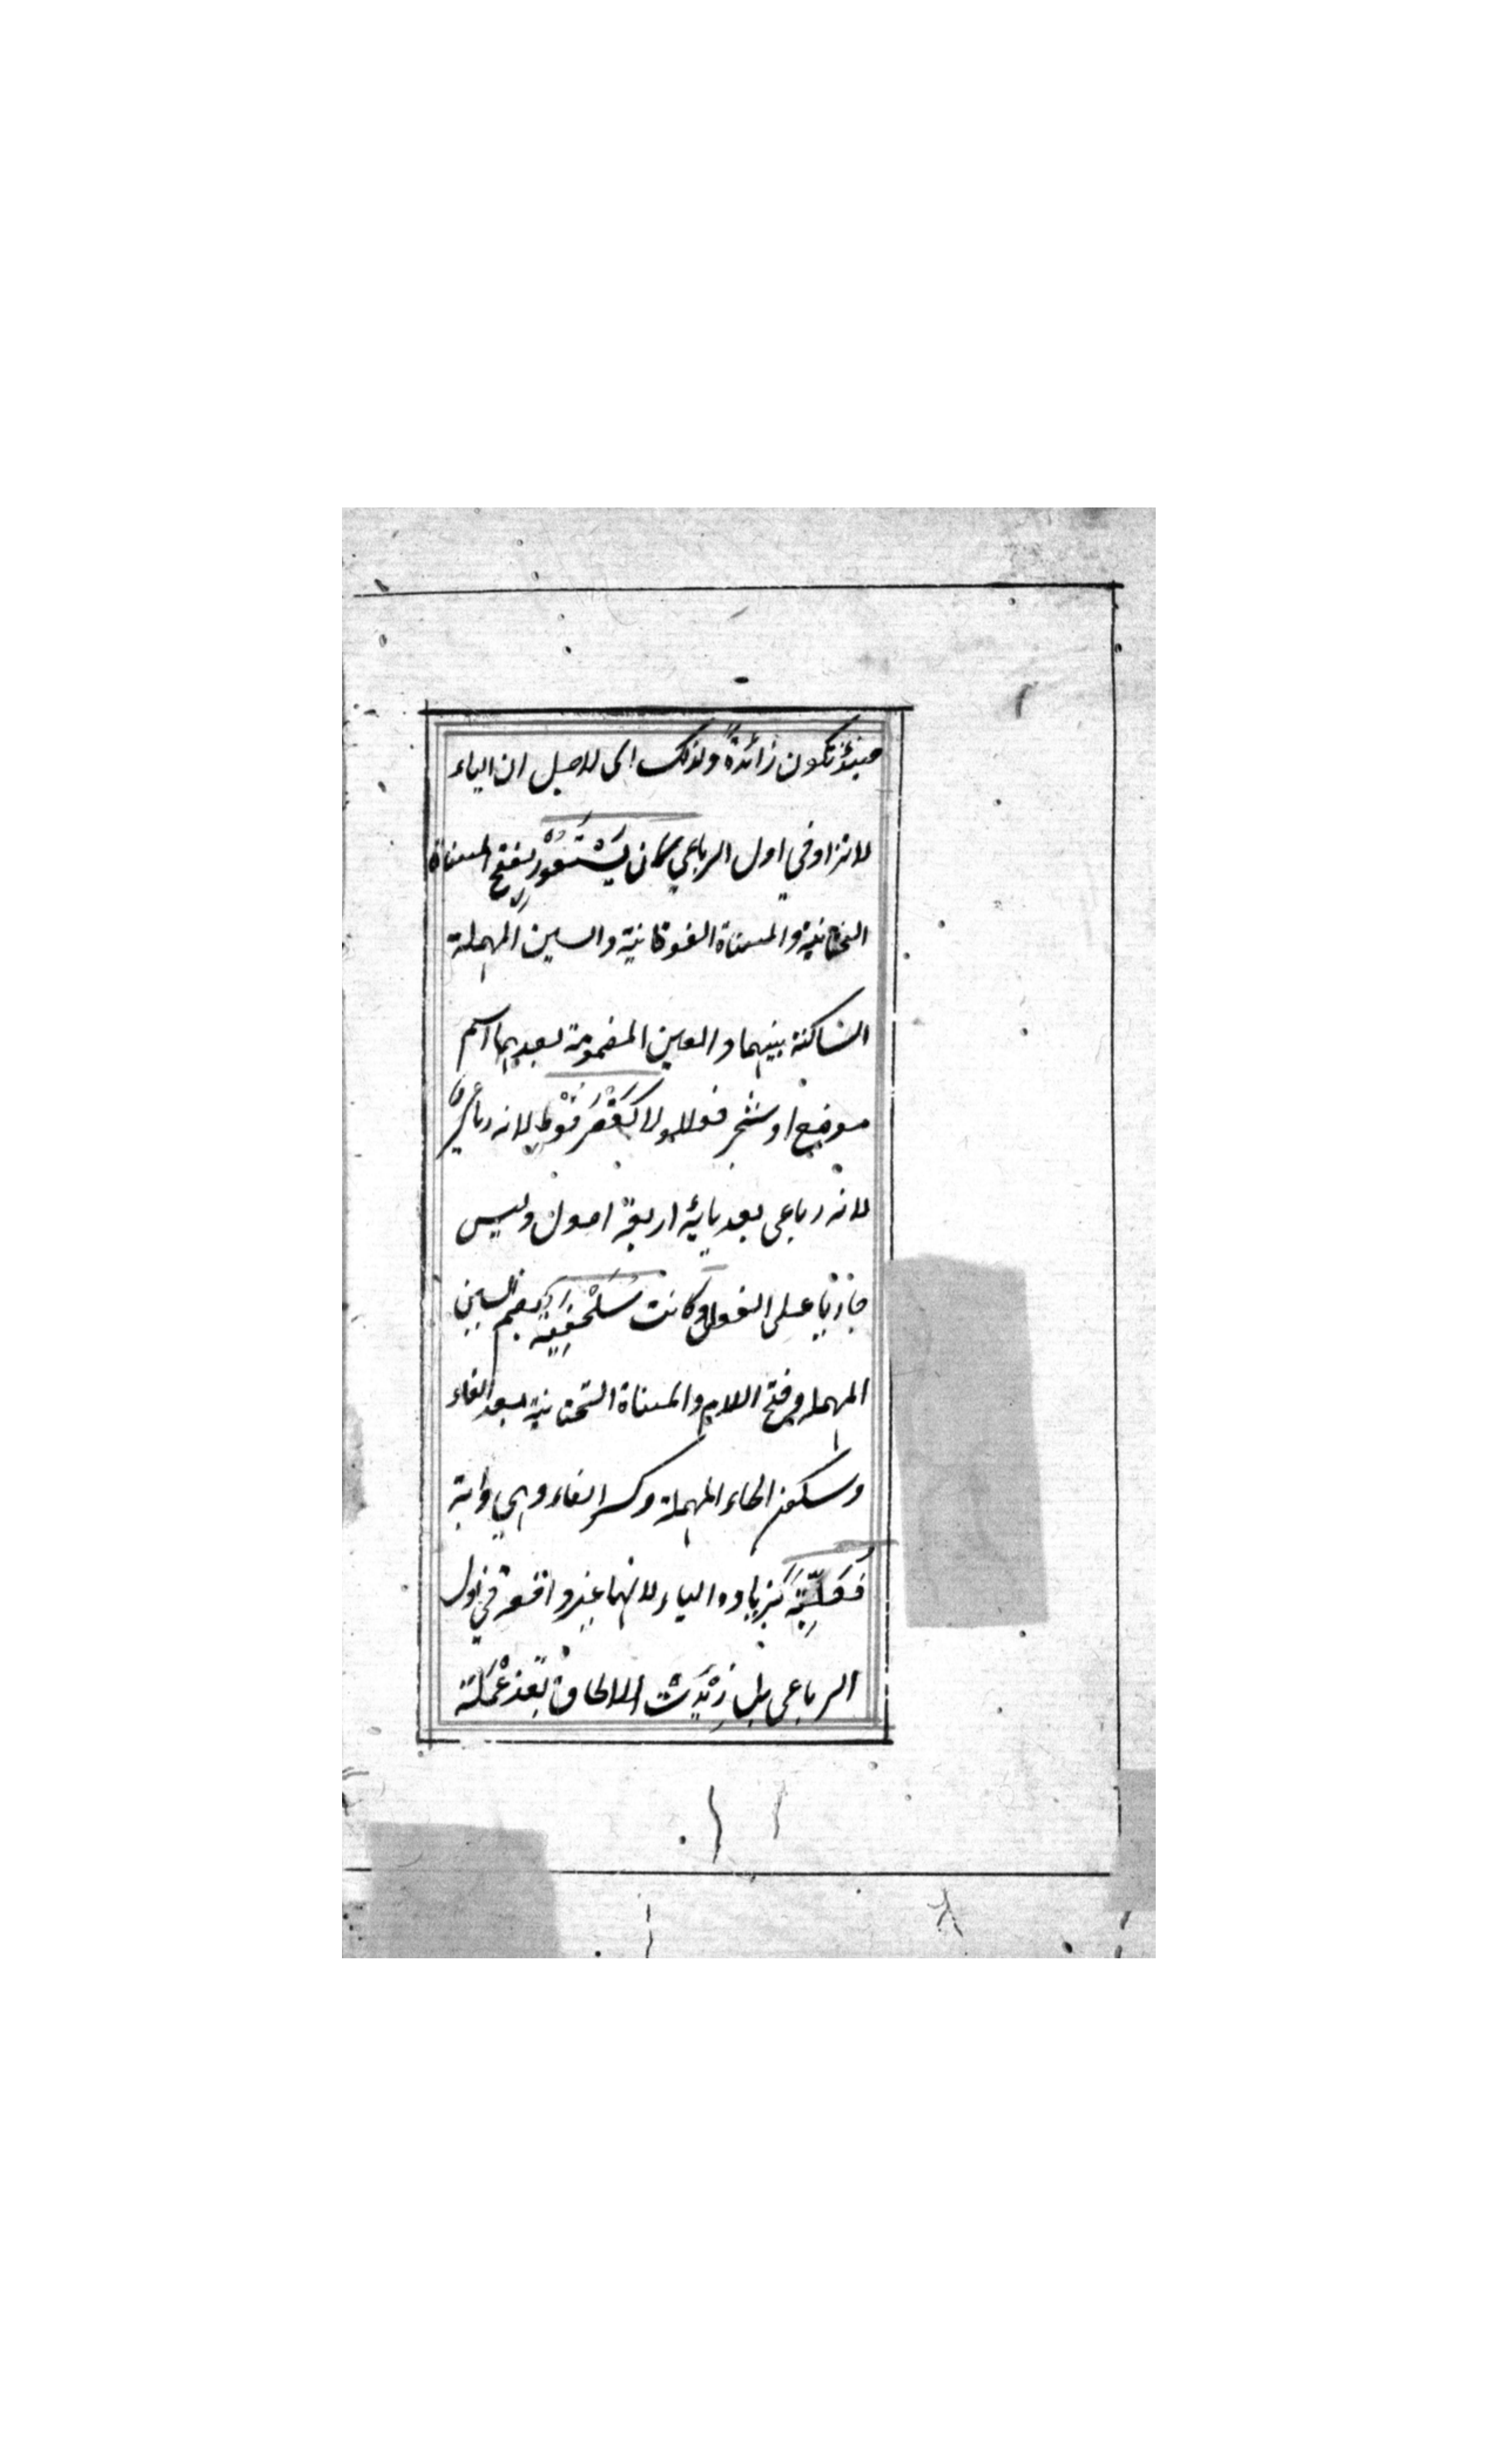 حينئذ تكون زائدةً ولذلك اى لاجل ان الياء
لا تزاد في اول الرباعي كان يَسْتَعُوْر بفتح المثناة
التحتانية والمثناة الفوقانية والسين المهملة
الساكنة بينهما والعين المضمومة بعدهما اسم
موضع او شجر فعللولا كعَضْرَفُوْطٍ لانه رباعي
لانه رباعى بعد يائه اربعة اصول وليس
جاريا على الفعل وكانت سُلَحْفِيَة بضم السين
المهمله وفتح اللام والمثناة التحتانية بعد الفاء
وسكون الحاء المهملة وكسر الفاء وهي دابة
فُعَلِّيَةً بزياده الياء لانها غير واقعة في اول
الرباعى بل زِيْدَت للالحاق بقُذَعْمِلَة